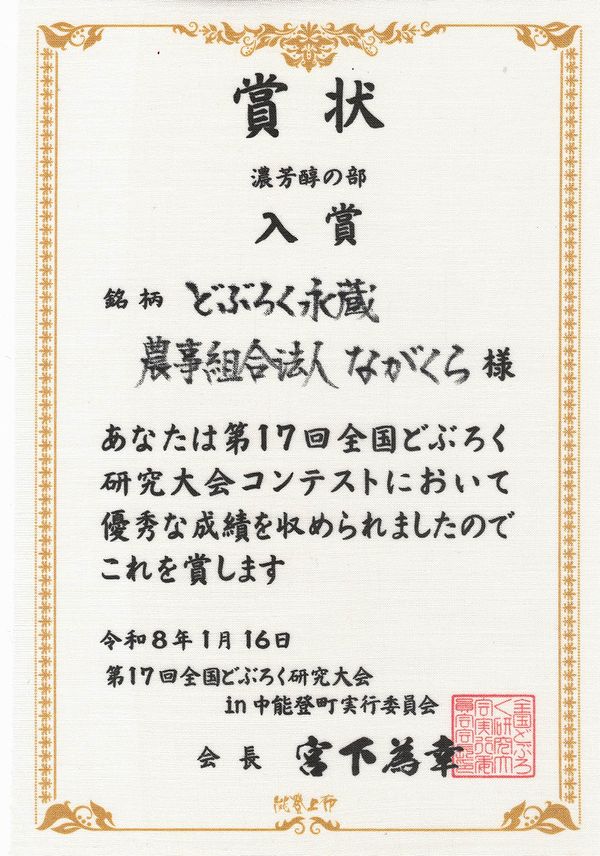 賞状
濃芳醇の部
入賞
銘柄 どぶろく永蔵
農事組合法人 ながくら 様
あなたは第17回全国どぶろく
研究大会コンテストにおいて
優秀な成績を収められましたので
これを賞します
令和8年1月16日
第17回全国どぶろく研究大会
in中能登町実行委員会
会長 宮下為幸
能登上布